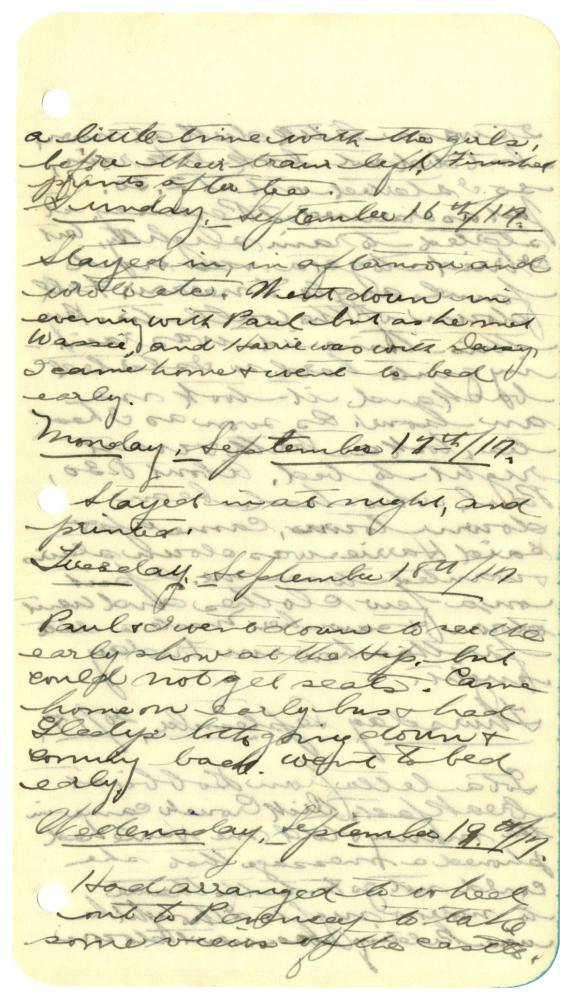 a little time with the girls,
before their train left, Finished
prints after tea.
Sunday, September 16th/17.
Stayed in, in afternoon and
wrote. Went down in
evening with Paul but as he met
and Harrie was with Daisy,
I came home & went to bed
early.
Monday, September 17th/17.
Stayed in at night, and
printed.
Tuesday, September 18th/17
Paul & I went down to see the
early show at the Hip. but
could not get seats. Came
home on early bus & had
Gladys both going down &
coming back. went to bed
early.
Wedensday, September 19th/17.
Had arranged to wheel
out to Pevensey to take
some views of the castle.